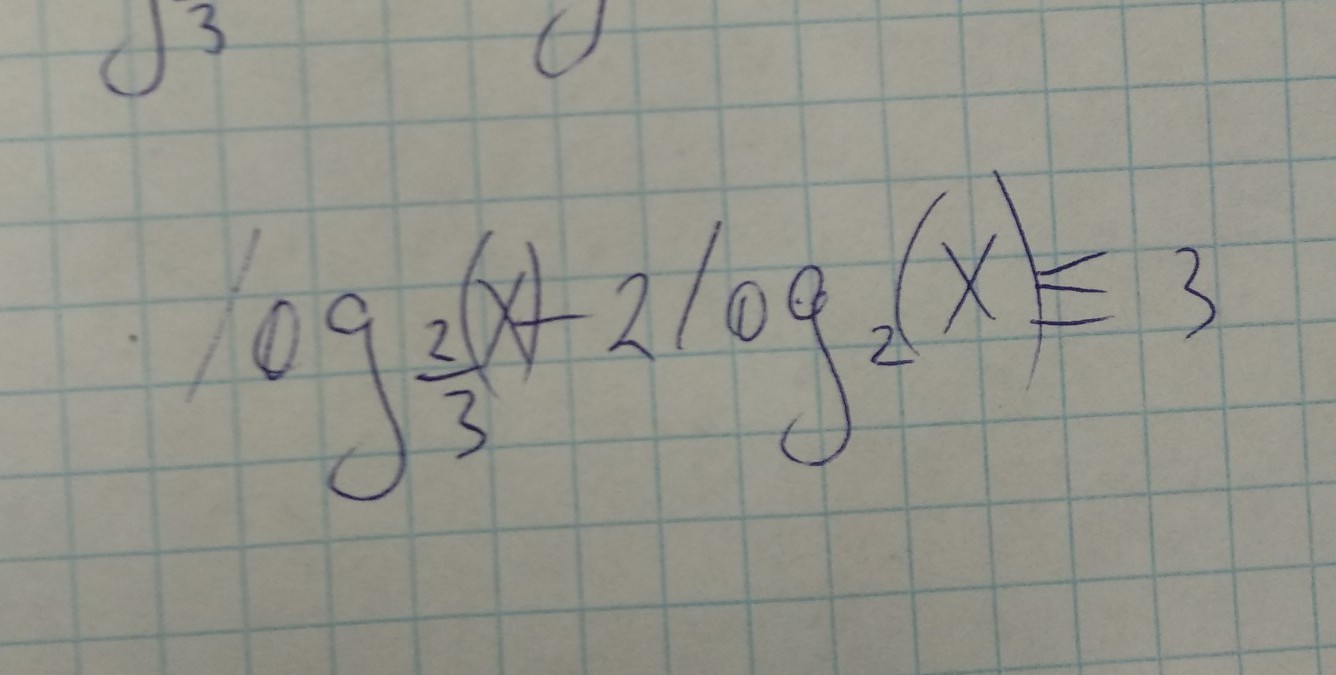 3
log_{\frac{2}{3}}(x) - 2log_{2}(x) ≤ 3